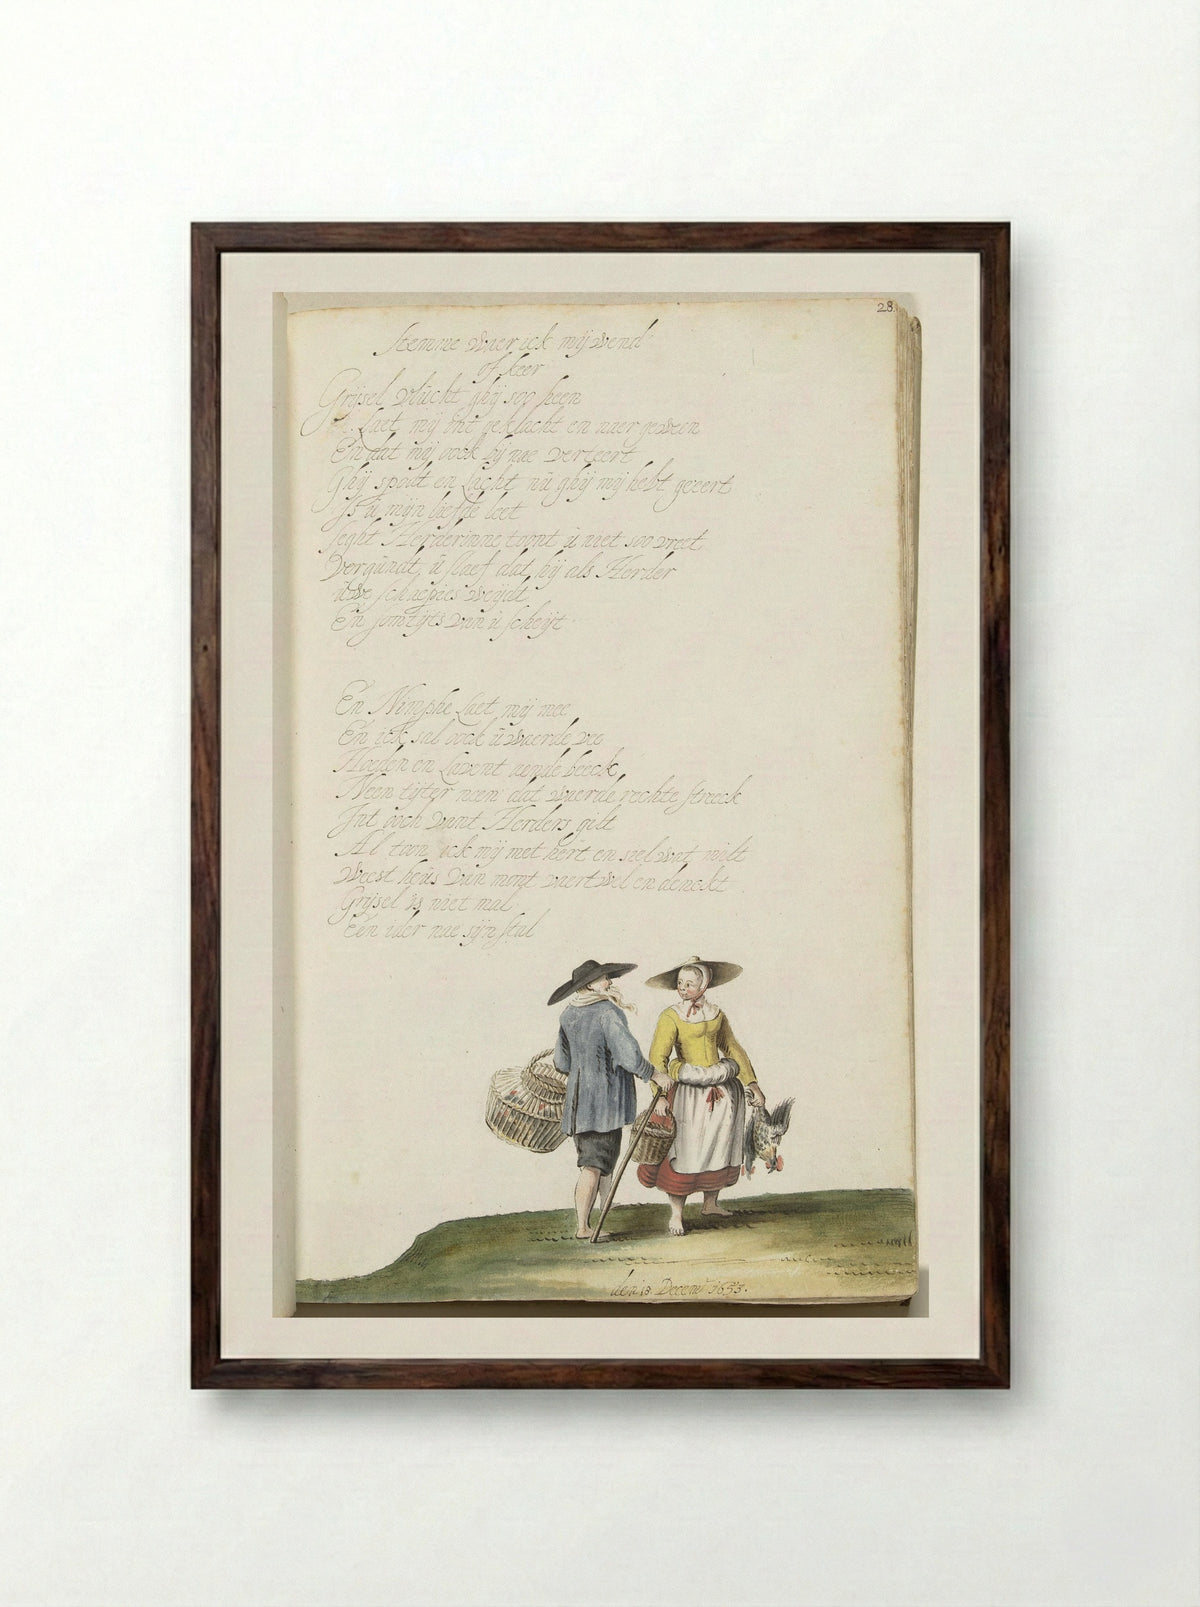 28
Stemme Waer ick mij wend
of keer
Grijsel vlucht ghij soo heen
laet mij int geklacht en naer geween
En dat mij oock bij nae verteert
Ghij spodt en lacht nu ghij mij hebt geeert
Is u mijn liefde leet
seght Herderinne toont u niet soo vreet
Vergundt u slaef dat hij als Herder
uwe schaepies weijdt
En somtijts van u scheijt
En Nimphe laet mij mee
En ick sal oock u waerde vee
Hoeden en Lavont aende beeck
Neen tijter neen dat waerde rechte streek
Int ooch vant Herders gilt
Al toon ick mij met hert en siel wat milt
Weest heus van mont vaert wel en denckt
Grijsel is niet mal
Een ider nae sijn stal
den 18 Decem 1653.